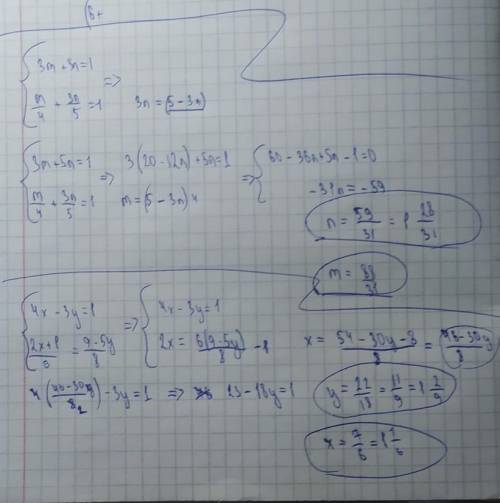 (6+
3m+3n=1
m/4 + 3n/5 = 1 => 3n = (5-3n)
3m+5n=1
m/4 + 3n/5 = 1
=> 3(20-12n)+5n=1
m=(5-3n)4
=> 60-36n+5n-1=0
-31n=-59
n = 59/31 = 1 28/31
m = 88/31
4x-3y=1
(2x+1)/6 = (9-5y)/8
=> 4x-3y=1
2x = 6(9-5y)/8 - 1
x = (54-30y-8)/8 = (48-30y)/8
- 3y = 1 => 23-18y=1
y = 22/18 = 11/9 = 1 2/9
x = 7/6 = 1 1/6